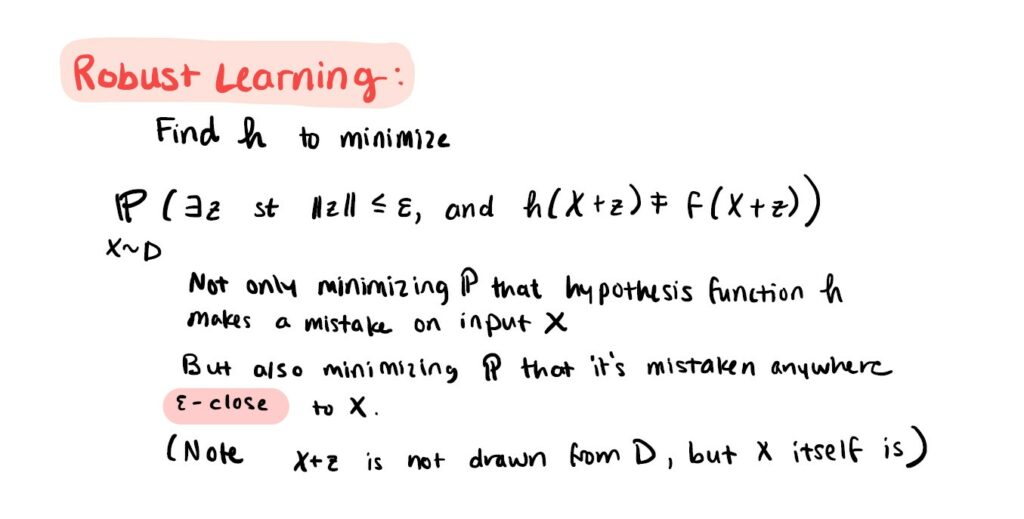 Robust Learning:
Find h to minimize
ℙ (∃z st ||z|| ≤ ε, and h(X+z) ≠ f(X+z))
X~D
Not only minimizing ℙ that hypothesis function h
makes a mistake on input X
But also minimizing ℙ that it's mistaken anywhere
ε-close to X.
(Note X+z is not drawn from D, but X itself is)